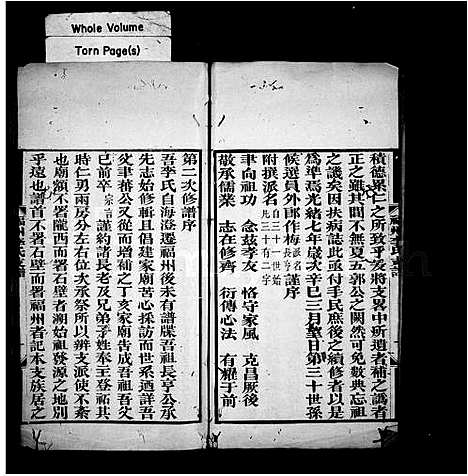 Whole Volume
Torn Page(s)
積德累仁之所致乎爰將支畧中所遺者補之譌者
正之雖其間不無夏五郭公之闕然可免數典忘祖
之譏矣因扶病誌此亟付手民庶後之續修者以是
為準焉光緒七年歲次辛巳三月望日第三十世孫
候選員外郎作梅派名長謹序
附撰派名自三十一世始凡三十有二字
聿向祖功 念茲孝友 恪守家風 克昌厥後
敬承儒業 志在修齊 衍傳心法 有耀于前
第二次修譜序
吾李氏自海澄遷福州後未有譜牒吾祖長亨公承
先志始修輯且倡建家廟苦心採訪而世系迺詳吾
父聿蕃公又從而增補之丁亥家廟告成吾祖吾父
已前卒謹約諸長老及兄弟子姓奉主登祏其
時仁男兩房分左右位次承祭所以辨支派使不紊
也廟額不署隴西而署石壁者溯始祖發源之地別
乎遠也譜首不署石壁而署福州者記本支族居之